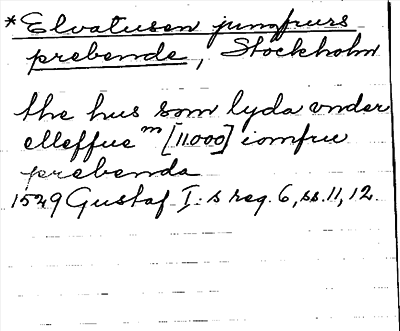 *Elvatusen jungfrurs
prebende, Stockholm
the hus som lyda vnder
elleffue m [11.000] iomfru
prebenda
1529 Gustaf I:s reg. 6, ss. 11, 12.